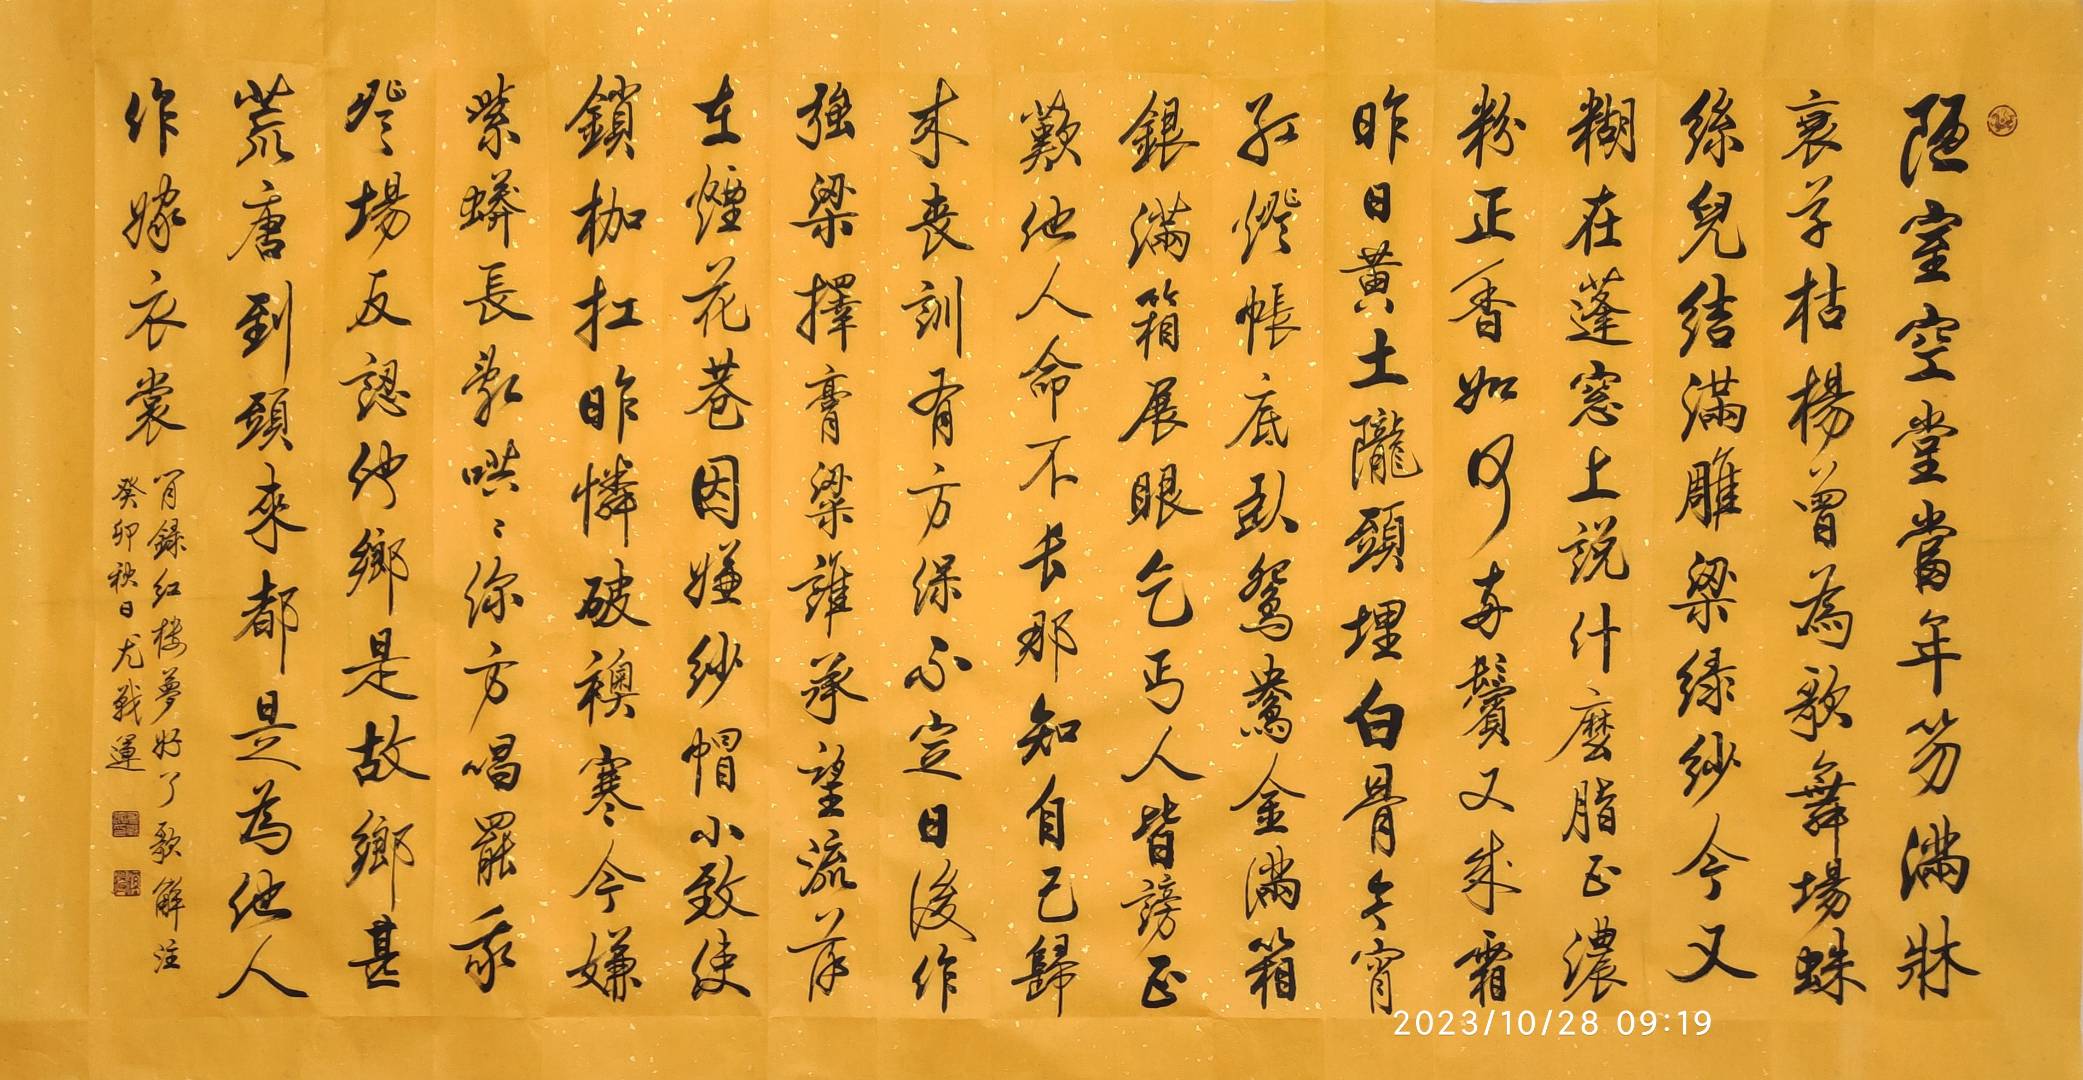 陋室空堂當年笏滿牀
衰草枯楊曾為歌舞場蛛
絲兒結滿雕梁緑紗今又
糊在蓬窓上説什麼脂正濃
粉正香如何兩鬢又成霜
昨日黃土隴頭埋白骨今宵
紅燈帳底臥鴛鴦金滿箱
銀滿箱展眼乞丐人皆謗正
歎他人命不長那知自己歸
來喪訓有方保不定日後作
強梁擇膏粱誰承望流落
在煙花巷因嫌紗帽小致使
鎖枷扛昨憐破襖寒今嫌
紫蟒長亂哄〻你方唱罷我
登場反認他鄉是故鄉甚
荒唐到頭來都是為他人
作嫁衣裳
節録紅樓夢好了歌解注
癸卯秋日尤戰運
2023/10/28 09:19